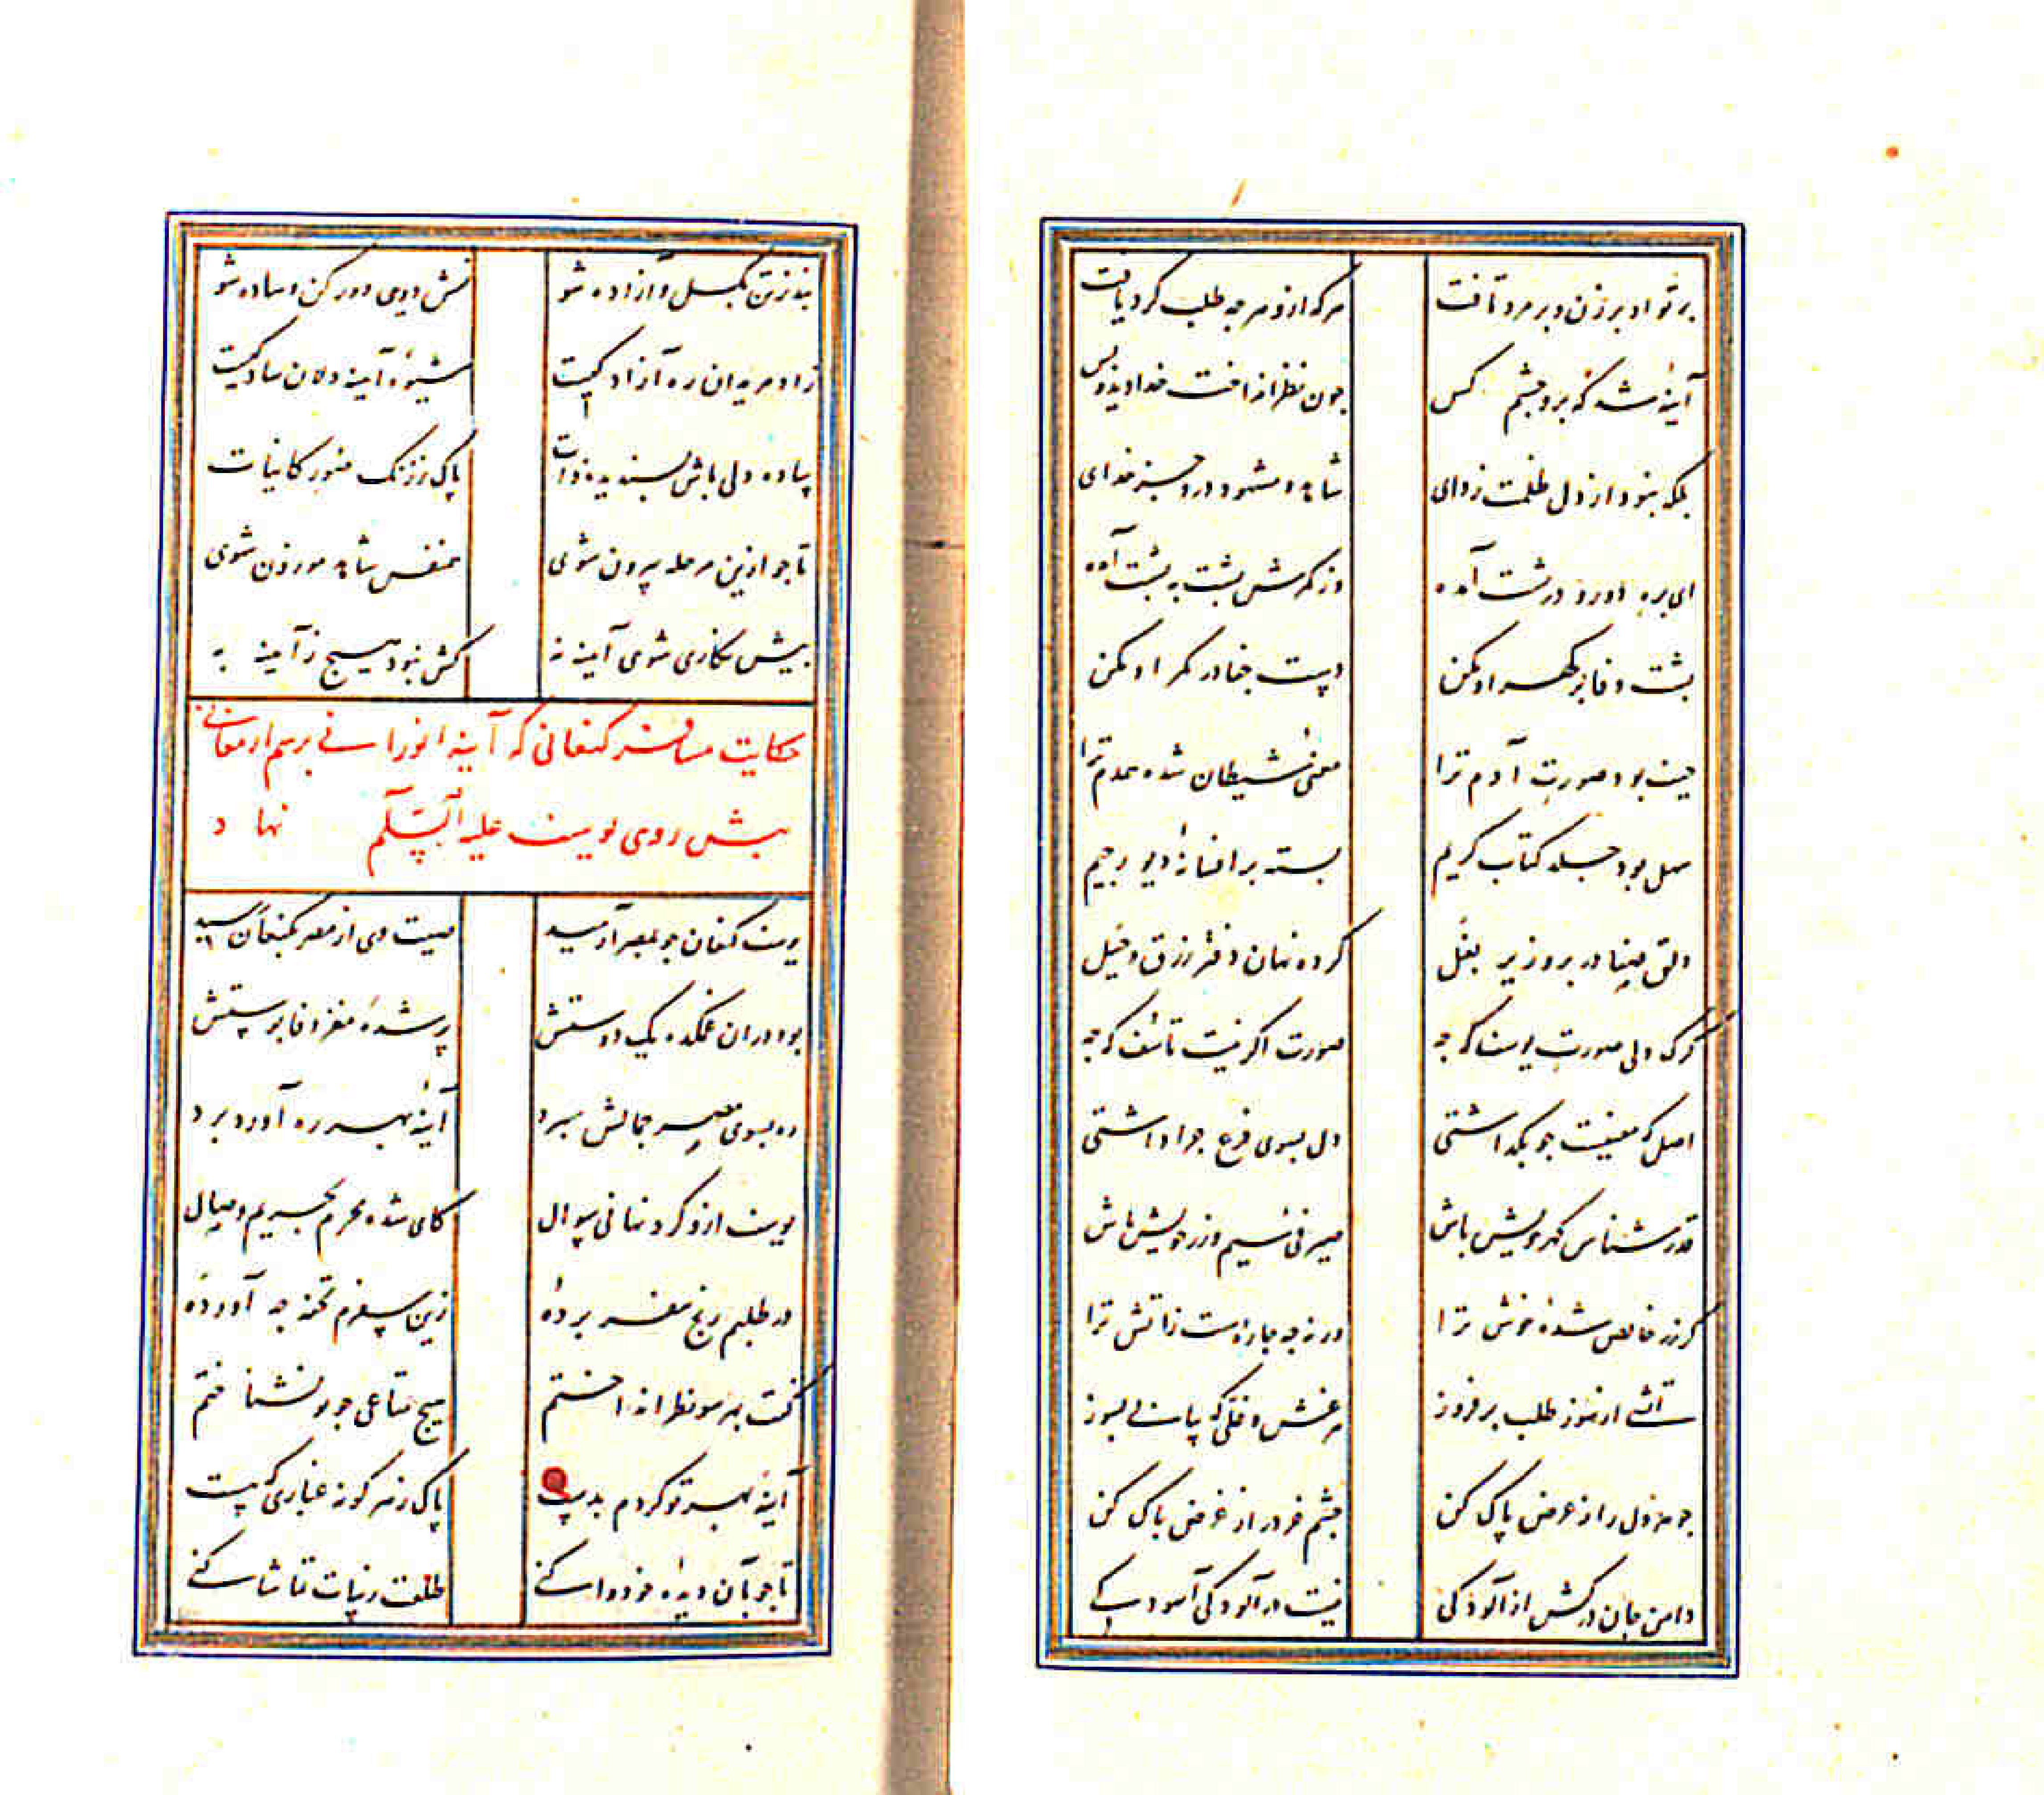 پرتو او بر زن و بر مرد تافت
هر که ازو هر چه طلب کرد یافت
آینهٔ شد که برو چشم کس
چون نظر انداخت خدا دید و بس
بلکه بنود از دل ظلمت زدای
شاهد و مشهود درو جز خدای
ای بره او رد درشت آمده
وز کمرش پشت به پشت آمده
پشت وفا بر گهر او مکن
دست جفا در کمر او مکن
حیف بود صورت آدم ترا
معنی شیطان شده همدم ترا
سهل بود جلد کتاب کریم
بسته بر افسانهٔ دیو رجیم
دلق در بر و زیر بغل
کرده نهان دفتر زرق و حیل
گرگ دلی صورت یوسف که چه
صورت اگر نیست تأسف که چه
اصل که معنیست چو بگذاشتی
دل بسوی فرع چرا داشتی
قدر شناس گهر خویش باش
صیرفی سیم و زر خویش باش
گر زر خالص شدهٔ خوش ترا
ور نه چه چاره است ز آتش ترا
آتشی از سوز طلب بر فروز
هر غش و قلبی که بیابی بسوز
جوهر دل را ز عرض پاک کن
چشم خرد را ز غرض پاک کن
دامن جان درکش از آلودگی
نیست در آلودگی آسودگی
بند ز تن بگسل و آزاده شو
نقش دویی دور کن و ساده شو
زاد مریدان ره آزادگیست
شیوهٔ آینه دلان سادگیست
ساده دلی باش پسندیده ذات
پاک ز زنگ صور کاینات
تا چو ازین مرحله بیرون شوی
همنفس شاهد موزون شوی
پیش نگاری شوی آینه نه
کش نبود هیچ ز آینه به
حکایت مسافر کنعانی که آینه نورانی برسم ارمغانی
پیش روی یوسف علیه السلام نهاد
یوسف کنعان چو بمصر آرمید
صیت وی از مصر بکنعان رسید
بود در آن غمکده یک دوستش
پر شده مغز وفا پوستش
ره بسوی مصر جمالش سپرد
آینهٔ بهر ره آورد برد
یوسف ازو کرد نهانی سوال
کای شده محرم بحریم وصال
در طلبم رنج سفر بردهٔ
زین سفرم تحفه چه آوردهٔ
گفت بهر سو نظر انداختم
هیچ متاعی چو تو نشناختم
آینهٔ بهر تو کردم بدست
پاک ز هر گونه غباری که هست
تا چو بآن دیده خود وا کنی
طلعت زیبات تماشا کنی